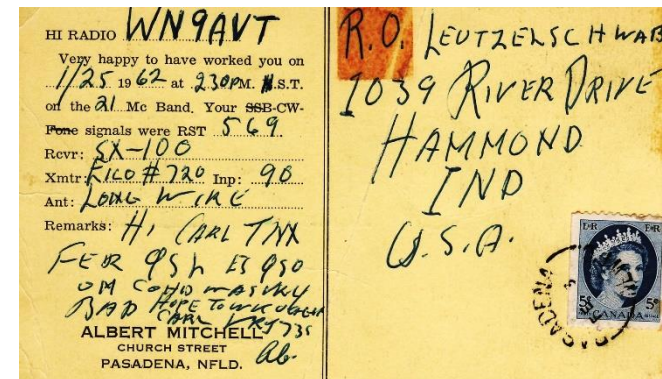 HI RADIO WN9AVT
Very happy to have worked you on
1/25 1962 at 230PM. N.S.T.
on the 21 Mc Band. Your SSB-CW-
Fone signals were RST 569
Rcvr: SX-100
Xmtr: EICO #720 Inp: 90
Ant: LONG WIRE
Remarks: HI CARL TNX
FER QSL ES QSO
OM COND
BAD HOPE TO
CARL 73s
ALBERT MITCHELL
CHURCH STREET
PASADENA, NFLD. Ab.
R.O. LEUTZELSCHWAB
1039 RIVER DRIVE
HAMMOND
IND
U.S.A.
E R E R
5¢ CANADA 5¢
PASADENA